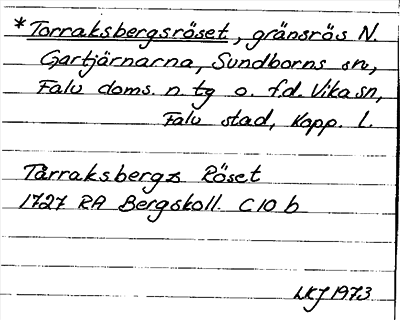 *Torraksbergsröset, gränsrös N.
Gartjärnarna, Sundborns sn,
Falu doms. n. tg o. f.d. Vika sn,
Falu stad, Kopp. l.
Tårraksbergz Röset
1727 RA Bergskoll. C10 b
LKJ 1973